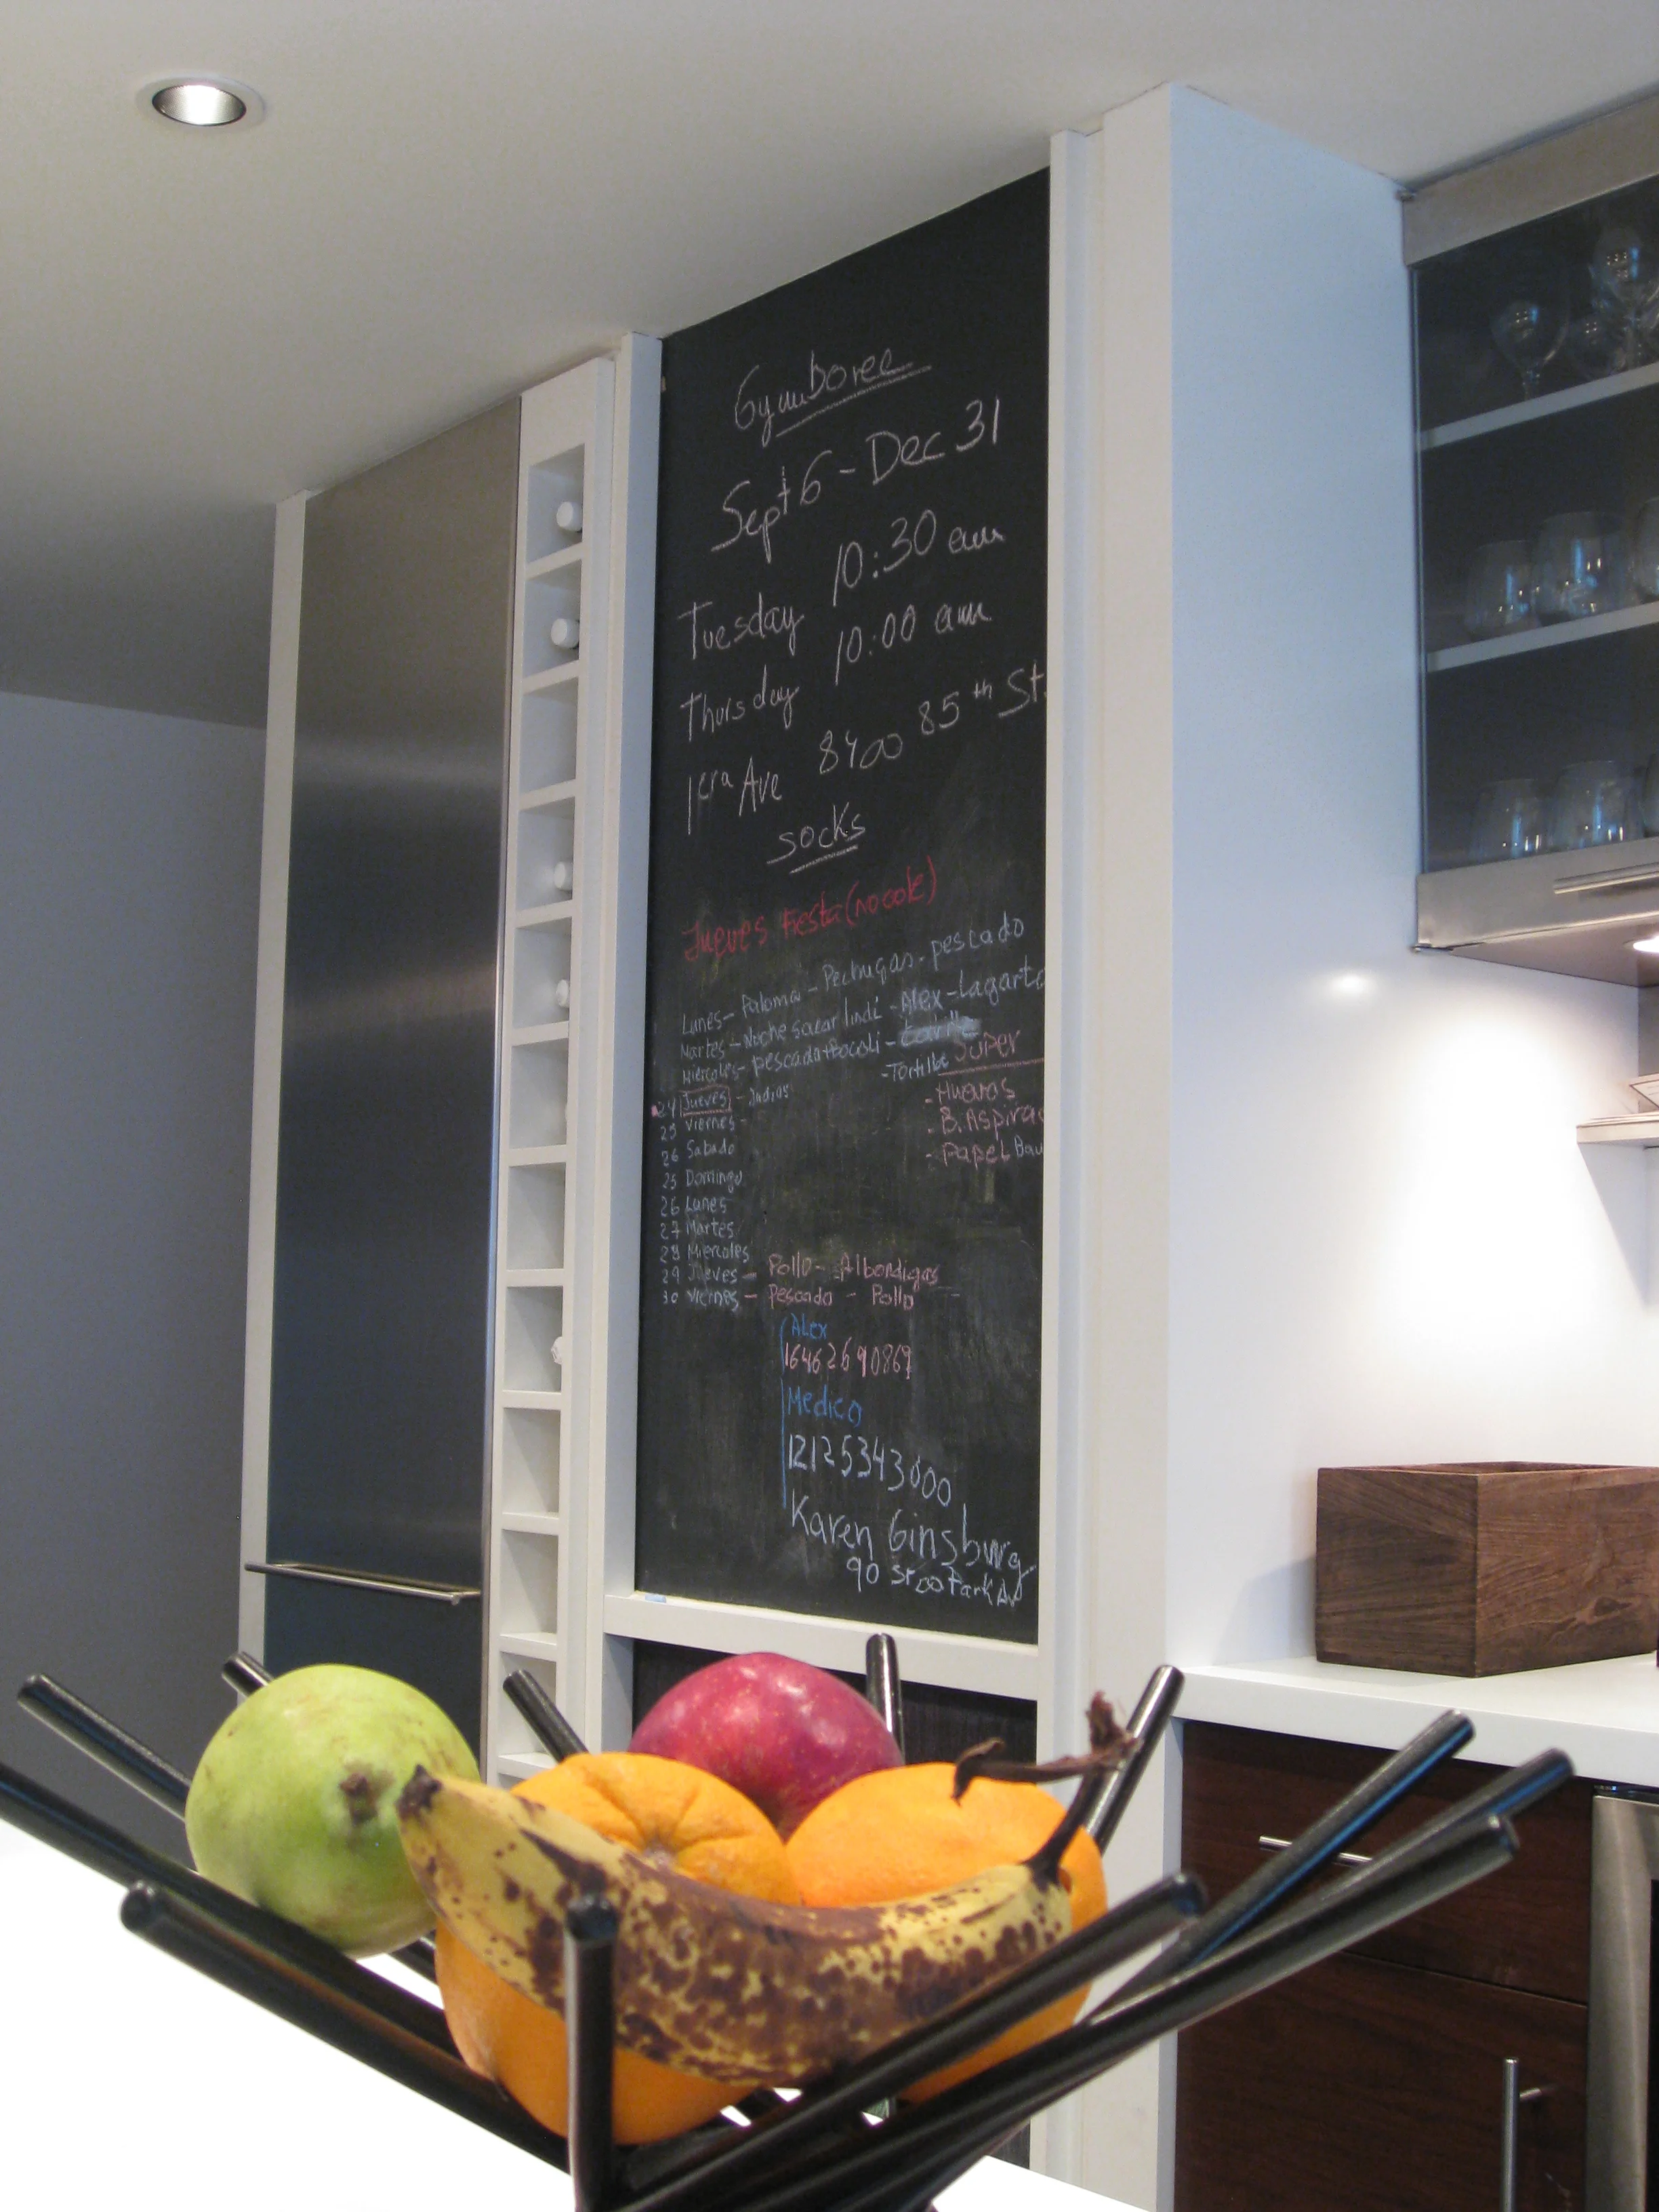 Gymboree
Sept 6 - Dec 31
Tuesday 10:30 am
Thursday 10:00 am
1era Ave 8400 85th St.
socks
Jueves Fiesta (no cole)
Lunes - Paloma - Pechugas - pescado
Martes - Noche sacar lindi - Alex - Lagarto
Miercoles - pescado + Bocoli -
- Tortilla
Super
24 Jueves - Indias
- Huevos
25 Viernes -
- B. Aspirac
26 Sabado
- Papel Bau
25 Domingo
26 Lunes
27 Martes
28 Miercoles
29 Jueves - Pollo - Albondigas
30 Viernes - Pescado - Pollo
Alex
16462690869
Medico
12125343000
Karen Ginsburg
90 St 00 Park Av